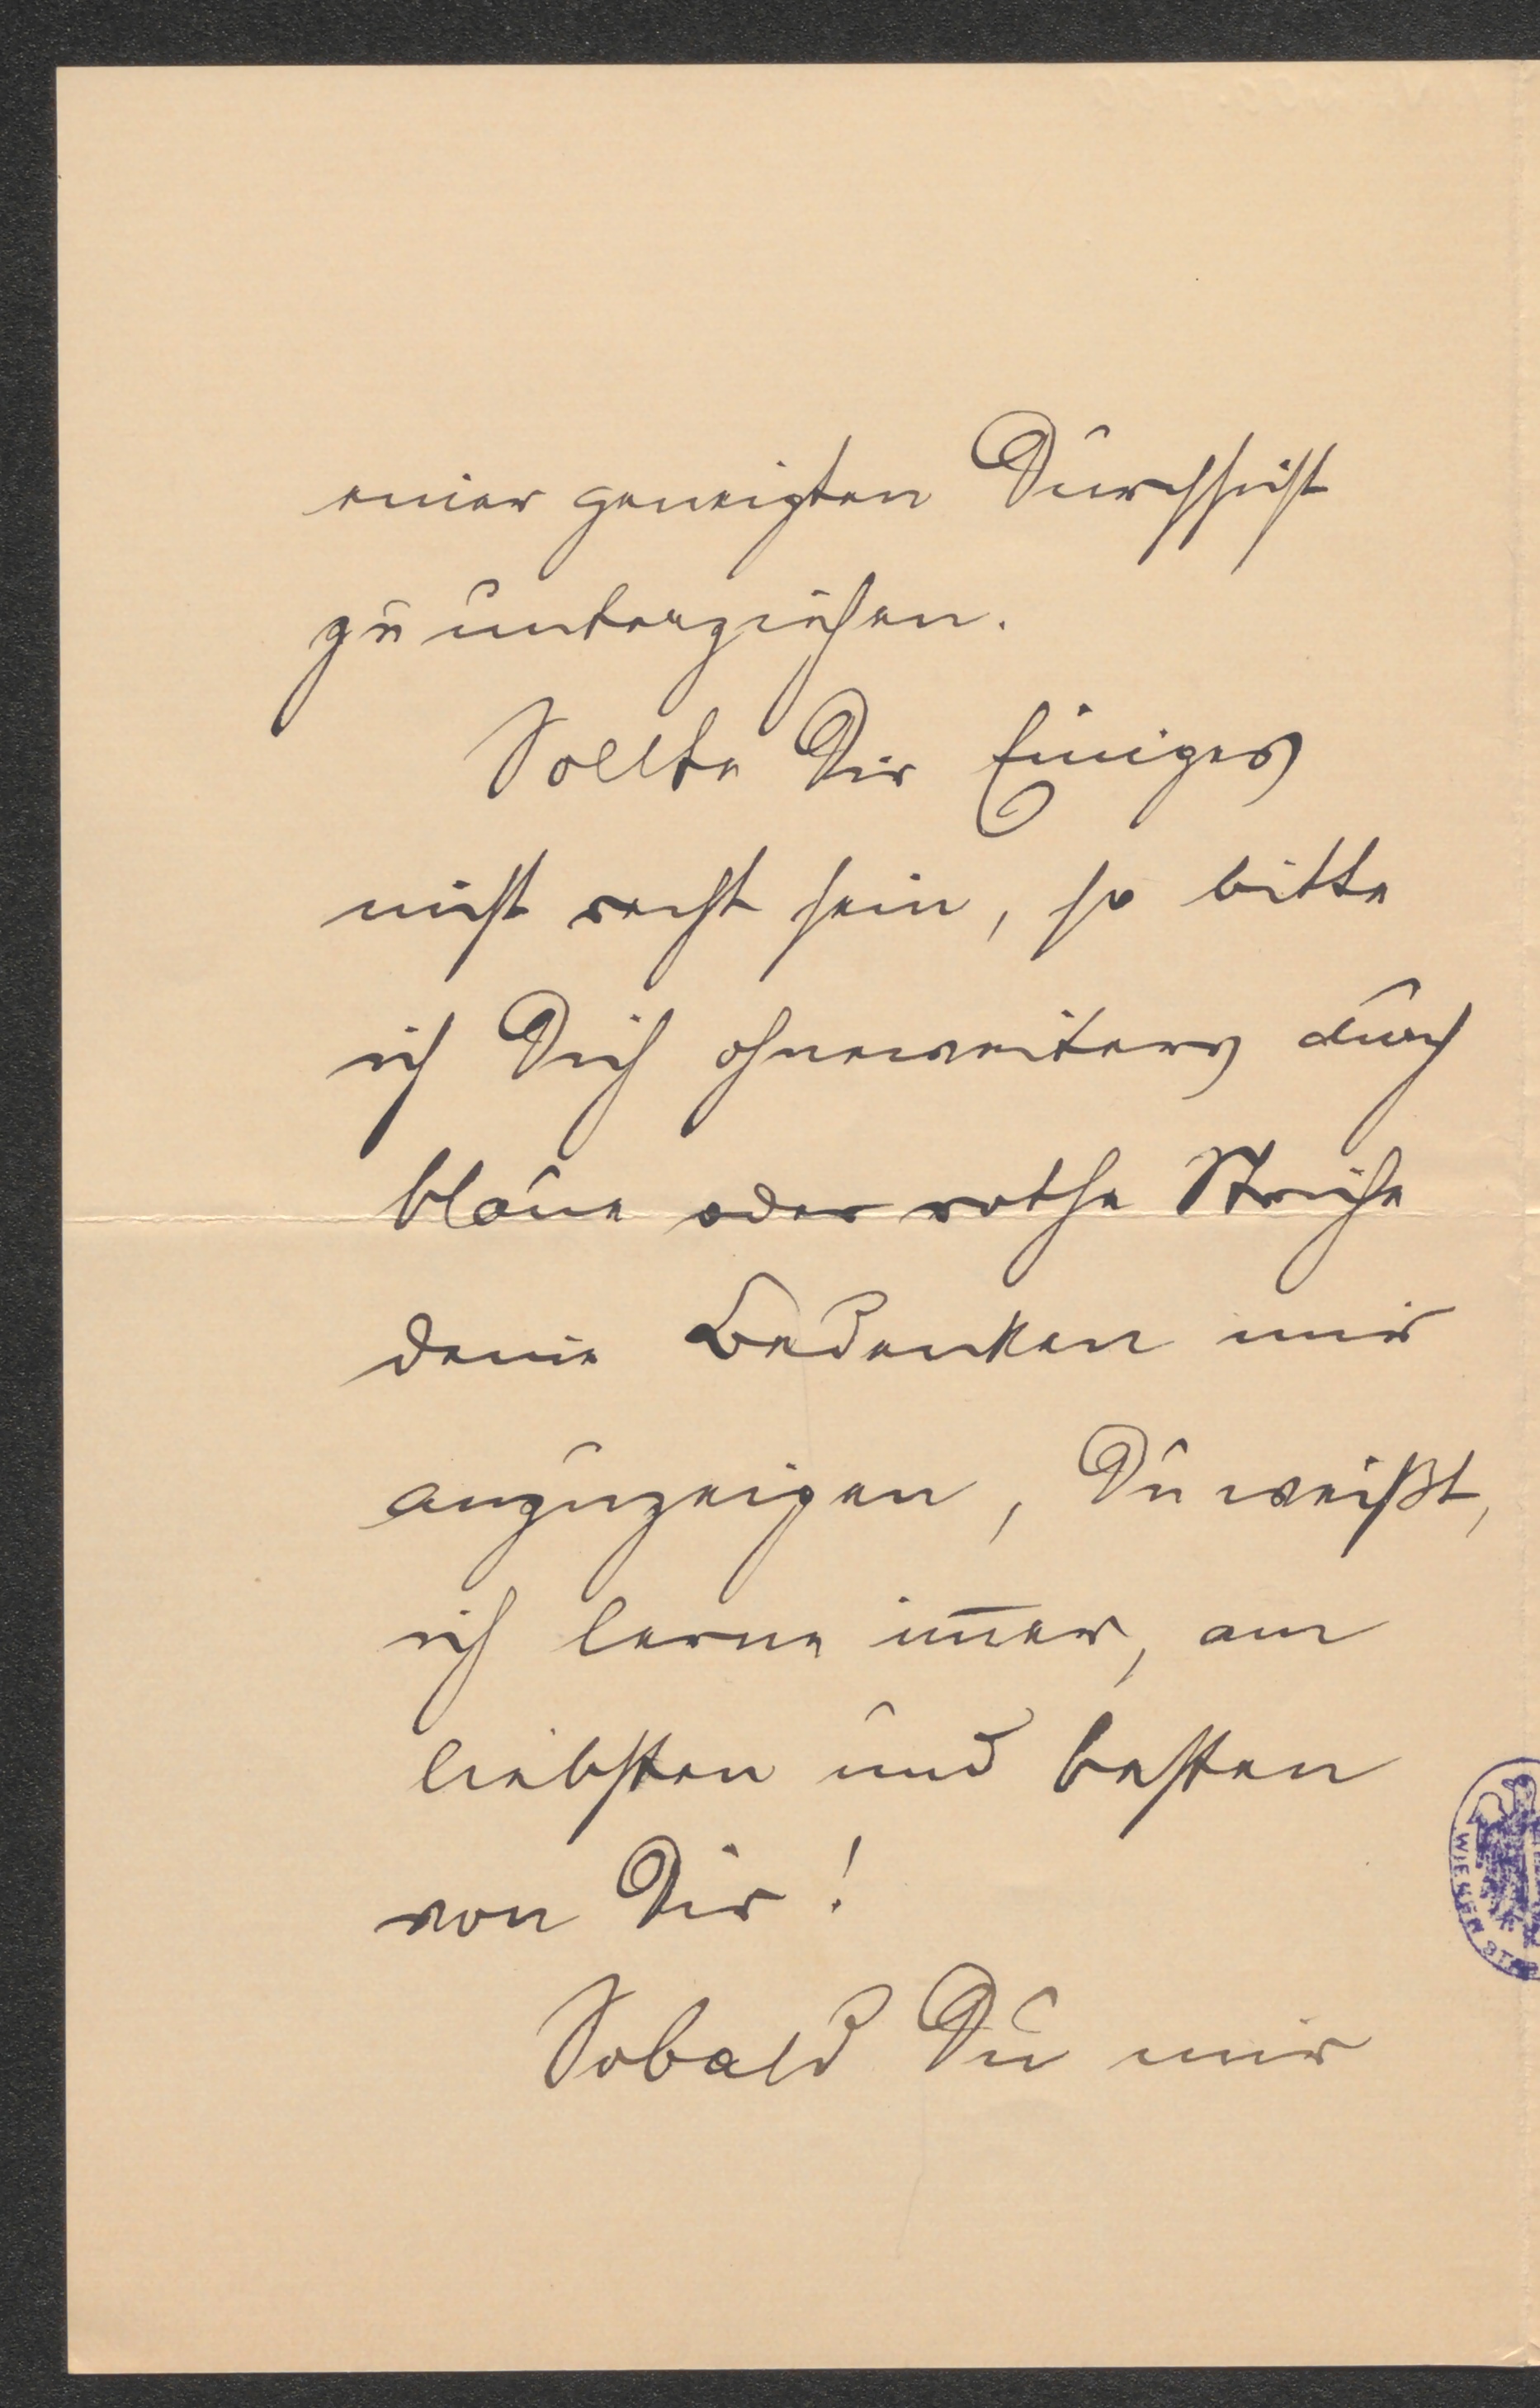 einer geneigten Durchsicht
zu unterziehen.
Sollte Dir Einiges
nicht recht sein, so bitte
ich Dich ohneweiters durch
blaue oder rothe Striche
deine Bedenken mir
anzuzeigen, Du weißt,
ich lerne im̅er, am
liebsten und besten
von Dir!
Sobald Du mir
WIENER ST